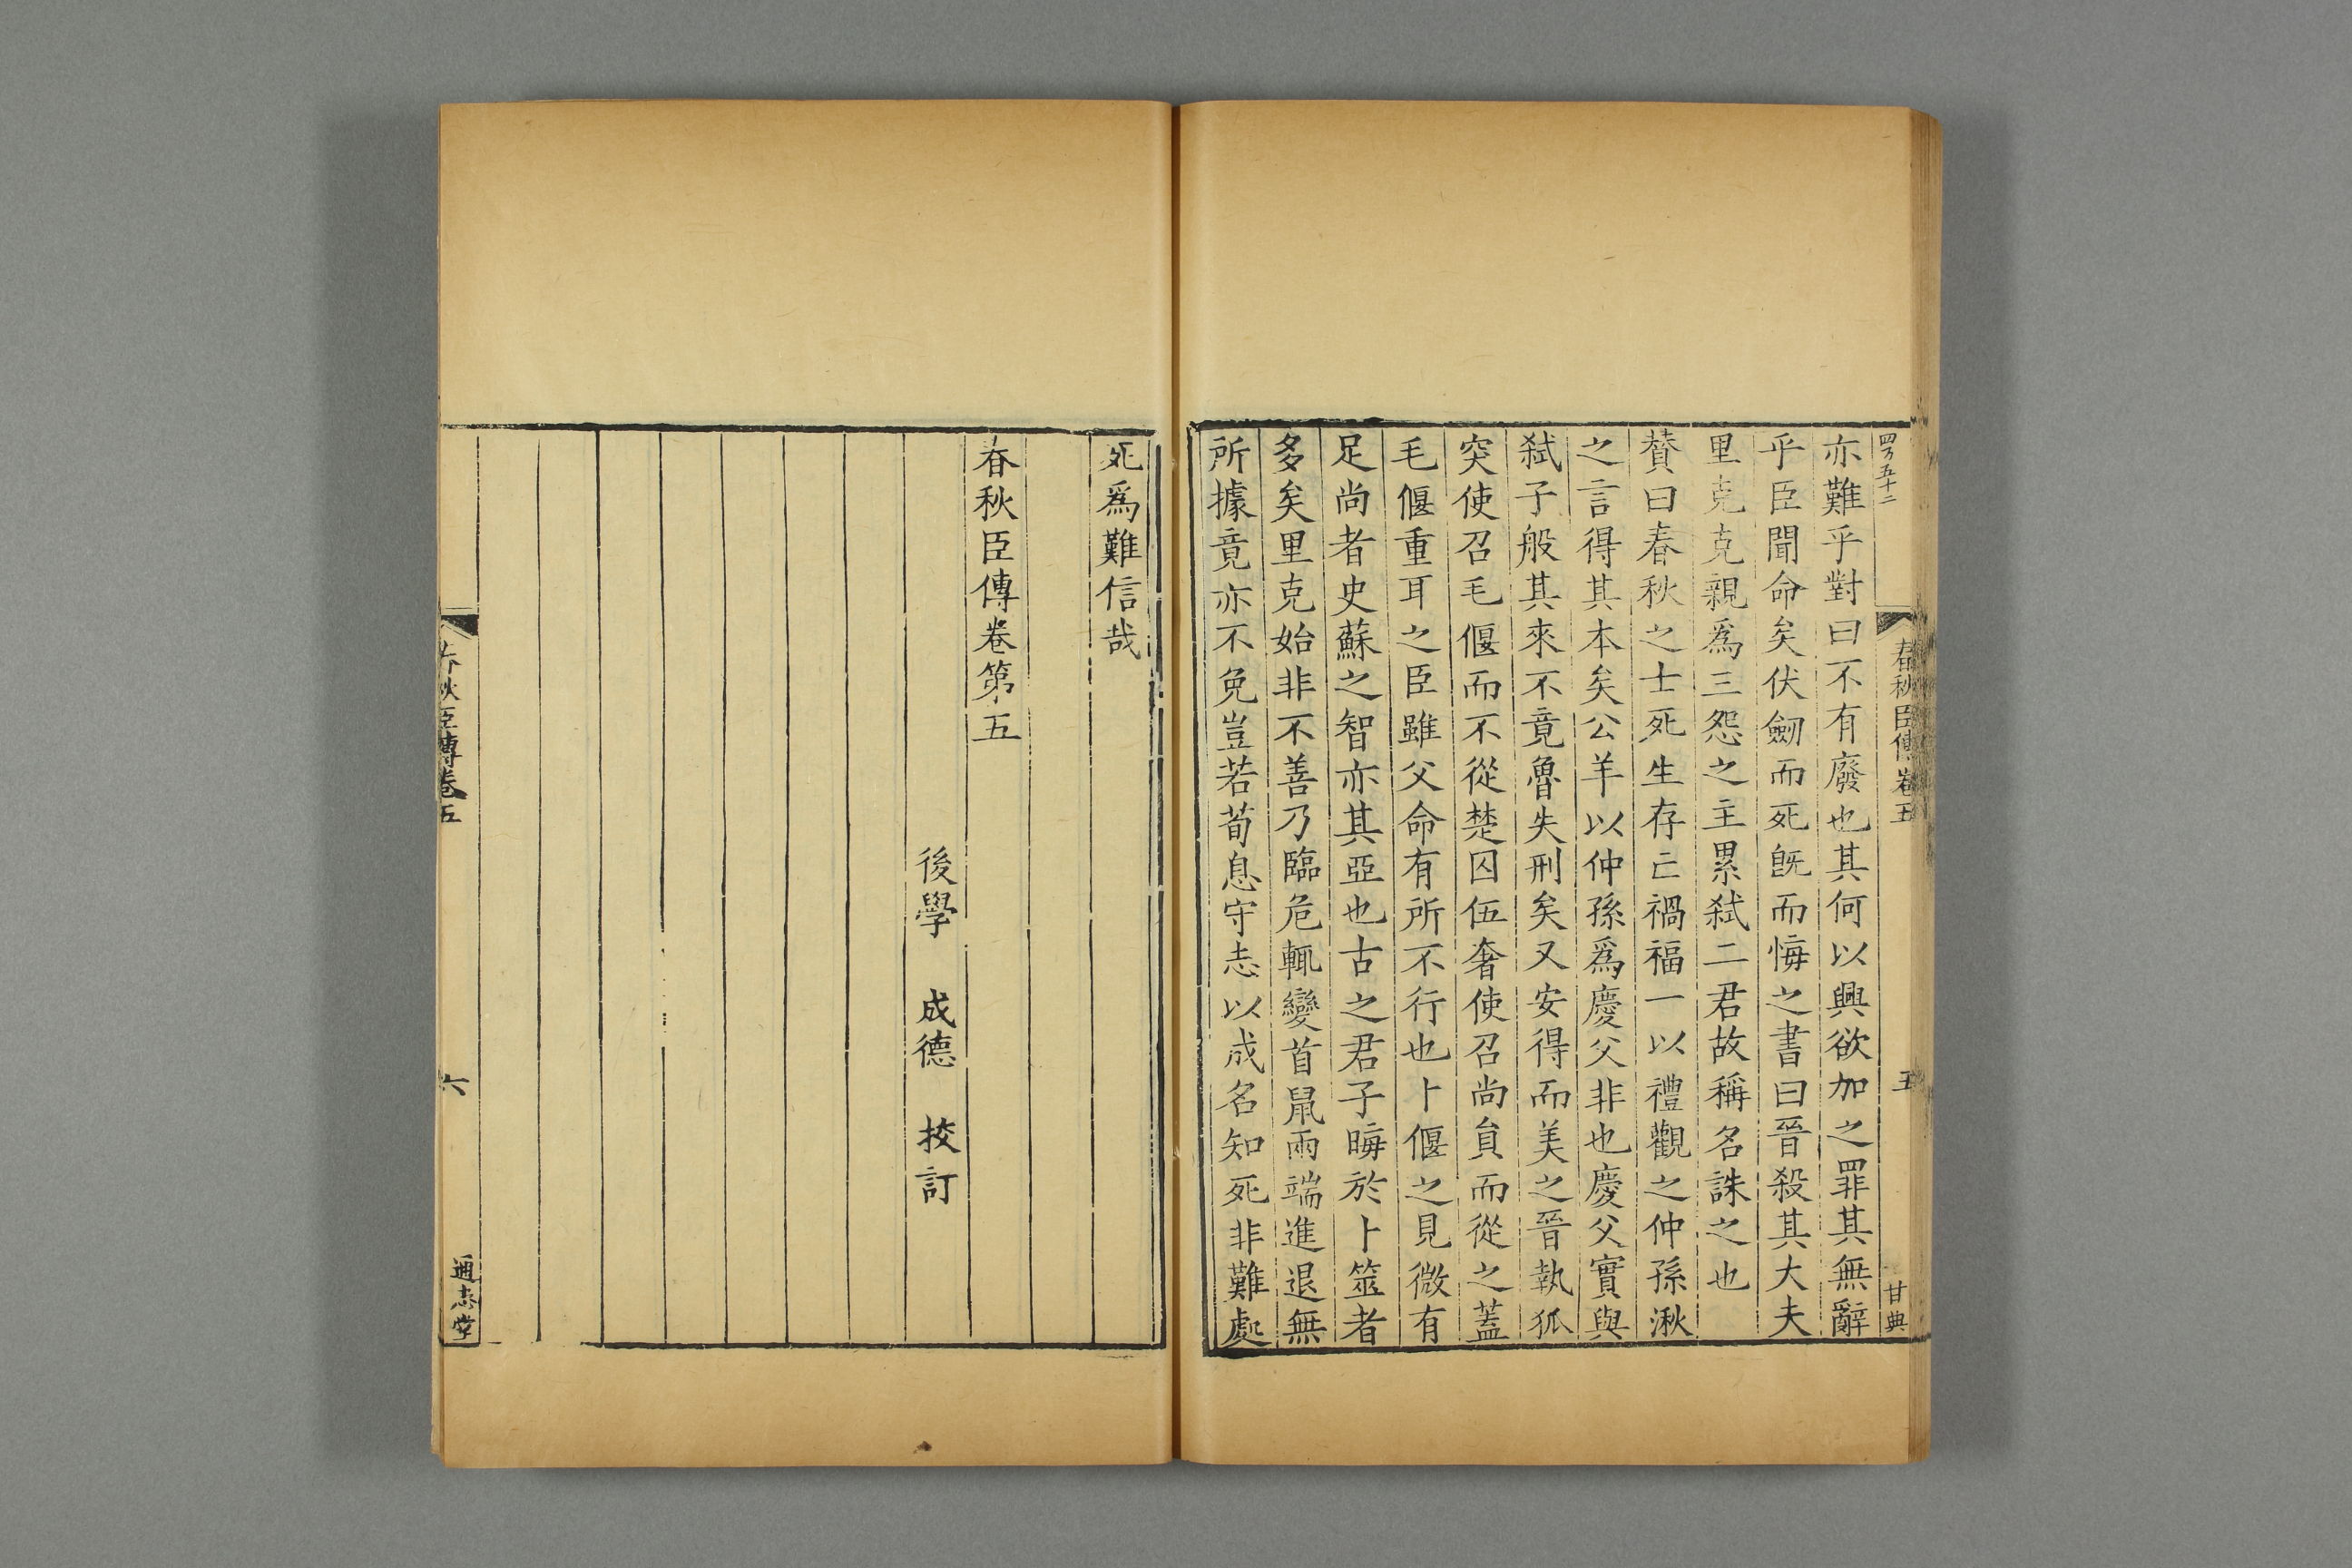 四百五十二
春秋臣傳卷五
五
甘典
亦難乎對曰不有廢也其何以興欲加之罪其無辭
乎臣聞命矣伏劒而死旣而悔之書曰晉殺其大夫
里克克親爲三怨之主累弑二君故稱名誅之也
賛曰春秋之士死生存亡禍福一以禮觀之仲孫湫
之言得其本矣公羊以仲孫爲慶父非也慶父實與
弑子般其來不竟魯失刑矣又安得而美之晉執狐
突使召毛偃而不從楚囚伍奢使召尚員而從之蓋
毛偃重耳之臣雖父命有所不行也卜偃之見微有
足尚者史蘇之智亦其亞也古之君子晦於卜筮者
多矣里克始非不善乃臨危輒變首鼠兩端進退無
所據竟亦不免豈若荀息守志以成名知死非難處
死爲難信哉
春秋臣傳卷第五
後學 成德 挍訂
春秋臣傳卷五
六
通志堂